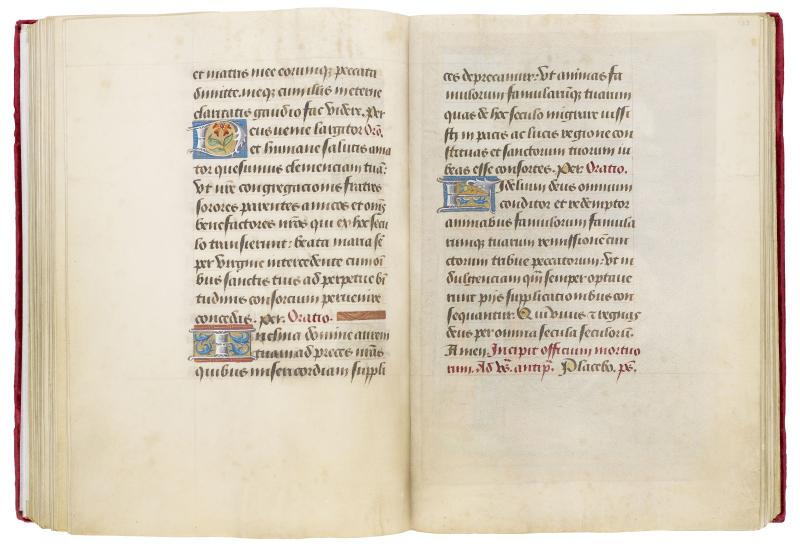 et matris mee eorumq; peccata
dimitte. meq; cum illis in eterne
claritatis gaudio fac videre. Per
Deus venie largitor Orō.
et humane salutis ama
tor quesumus clemenciam tuā:
Vt nrē congregacionis fratres
sorores parentes amicos et om̄s
benefactores nrōs qui ex hoc secu
lo transierunt: beata maria sē
per virgine intercedente cum oī
bus sanctis tuis ad perpetue bī
tudinis consorcium peruenire
concedas. Per. Oratio.
Inclina domine aurem
tuam ad preces nrās
quibus misericordiam suppli
ces deprecamur: Vt animas fa
mulorum famularumq; tuarum
quas de hoc seculo migrare iussi
sti, in pacis ac lucis regione con
stituas et sanctorum tuorum iu
beas esse consortes. Per. Oratio.
Fidelium deus omnium
conditor et redemptor
animabus famulorum famula
rumq; tuarum remissionē cun
ctorum tribue peccatorum: Vt in
dulgenciam quā semper optaue
runt piis supplicationibus con
sequantur. Qui viuis et regnas
deus per omnia secula seculorū.
Amen. Incipit officium mortuo
rum. Ad vs̄. antip̄. Placebo. ps̄.